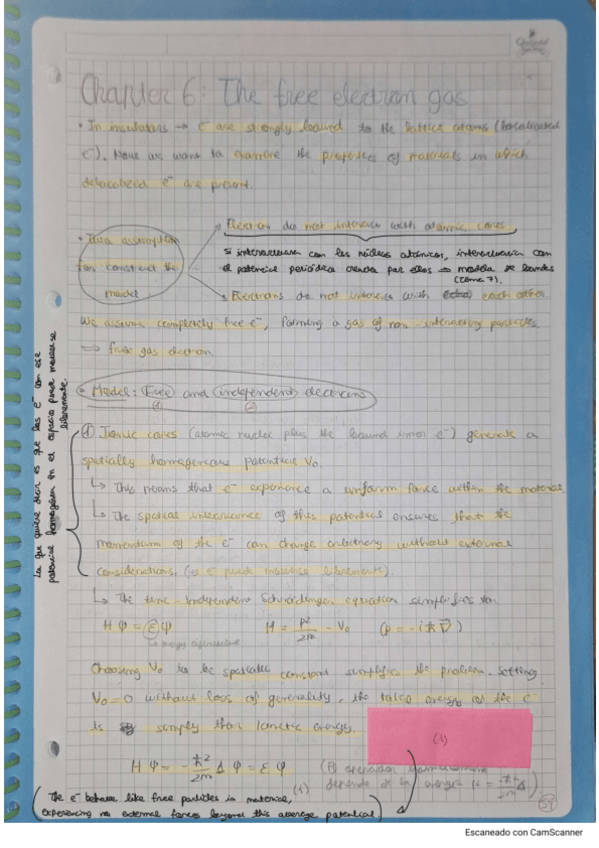 Chapter 6: The free electron gas
• In insulators → e⁻ are strongly bound to the lattice atoms (localicated
e⁻). Now we want to examine the properties of materials in which
delocalized e⁻ are present.
Electron do not interact with atomic cores.
• Two assumption
for construct the
model
Si interactuaran con los núcleos atómicos, interactuarían con
el potencial periódico creado por ellos → modelo de bandas
(tema 7).
• Electrons do not interact with each other
We assume completely free e⁻, forming a gas of non-interacting particles
⇒ free gas electron.
• Model: Free and independent electrons
(1) (2)
① Ionic cores (atomic nuclei plus the bound inner e⁻) generate a
spatially homogeneous potential V₀.
↳ This means that e⁻ experience a uniform force within the material
↳ The spatial invariance of this potential ensures that the
momentum of the e⁻ can change arbitrary without external
considerations. (el e⁻ puede moverse libremente).
↳ The time-independent Schrödinger equation simplifies to:
H φ = ε φ H = p²/2m - V₀ (p = -iħ ∇)
↳ energy eigenvalue
Choosing V₀ to be spatially constant simplifies the problem. Setting
V₀ = 0 without loss of generality, the total energy of the e⁻
is simply their kinetic energy.
(1)
H φ = - ħ²/2m Δ φ = ε φ
(1)
(El operador
depende de la energía
The e⁻ behave like free particles in material,
experiencing no external forces beyond this average potential)
54
Lo que quiere decir es que los e⁻ con ese
potencial homogéneo en el espacio puede moverse
libremente.
Escaneado con CamScanner